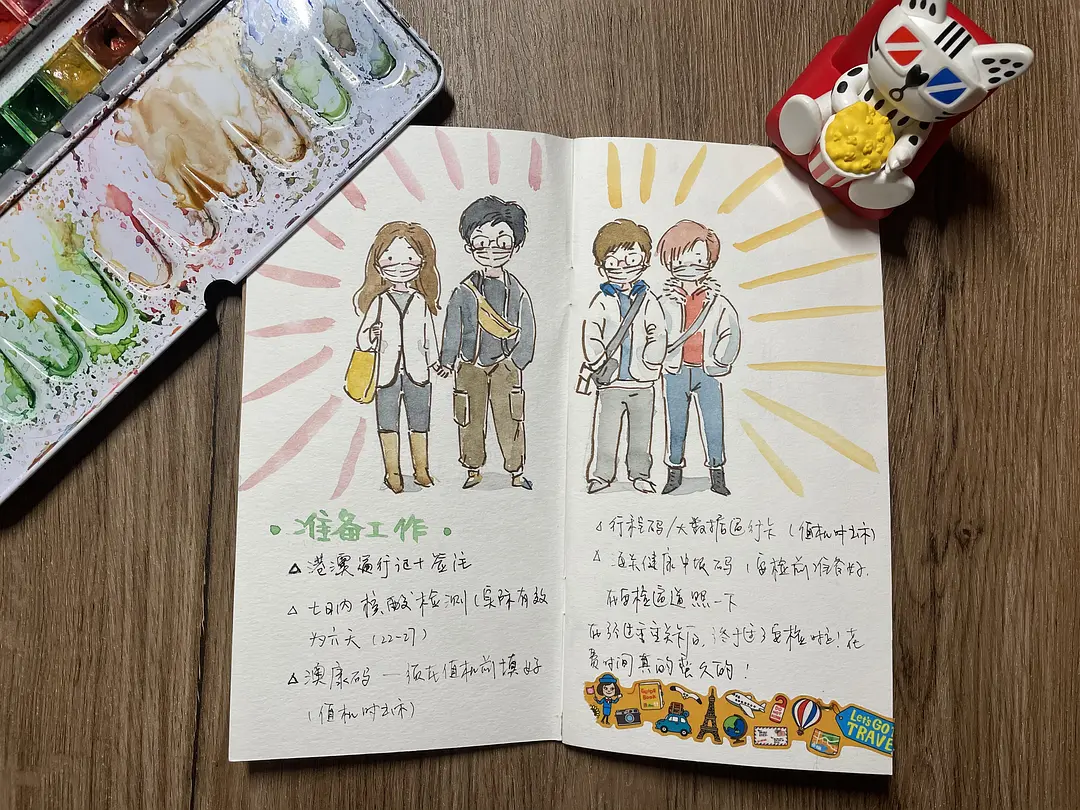 ·准备工作·
△ 港澳通行证+签注
△ 七日内核酸检测(实际有效
为六天(22-27)
△ 澳康码 — 须在值机前填好
(值机时出示)
△ 行程码/大数据通行卡(值机时出示)
△ 通关健康申报码(安检前准备好,
在安检通道照一下
在经过重重关卡后,终于过了安检啦!花
费时间真的蛮久的!
Let's GO
TRAVE